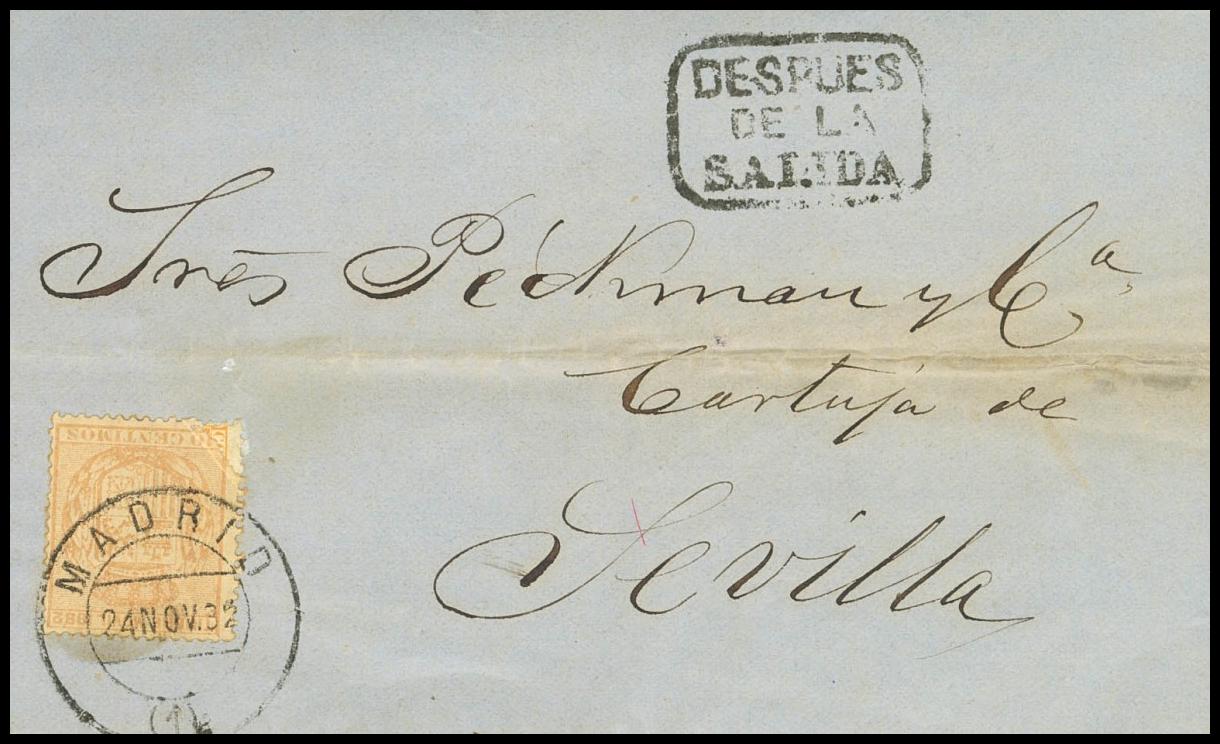 DESPUES
DE LA
SALIDA
Sres Pickman y Cª
Cartuja de
Sevilla
CENTIMOS
MADRID
24 NOV. 82
(1)